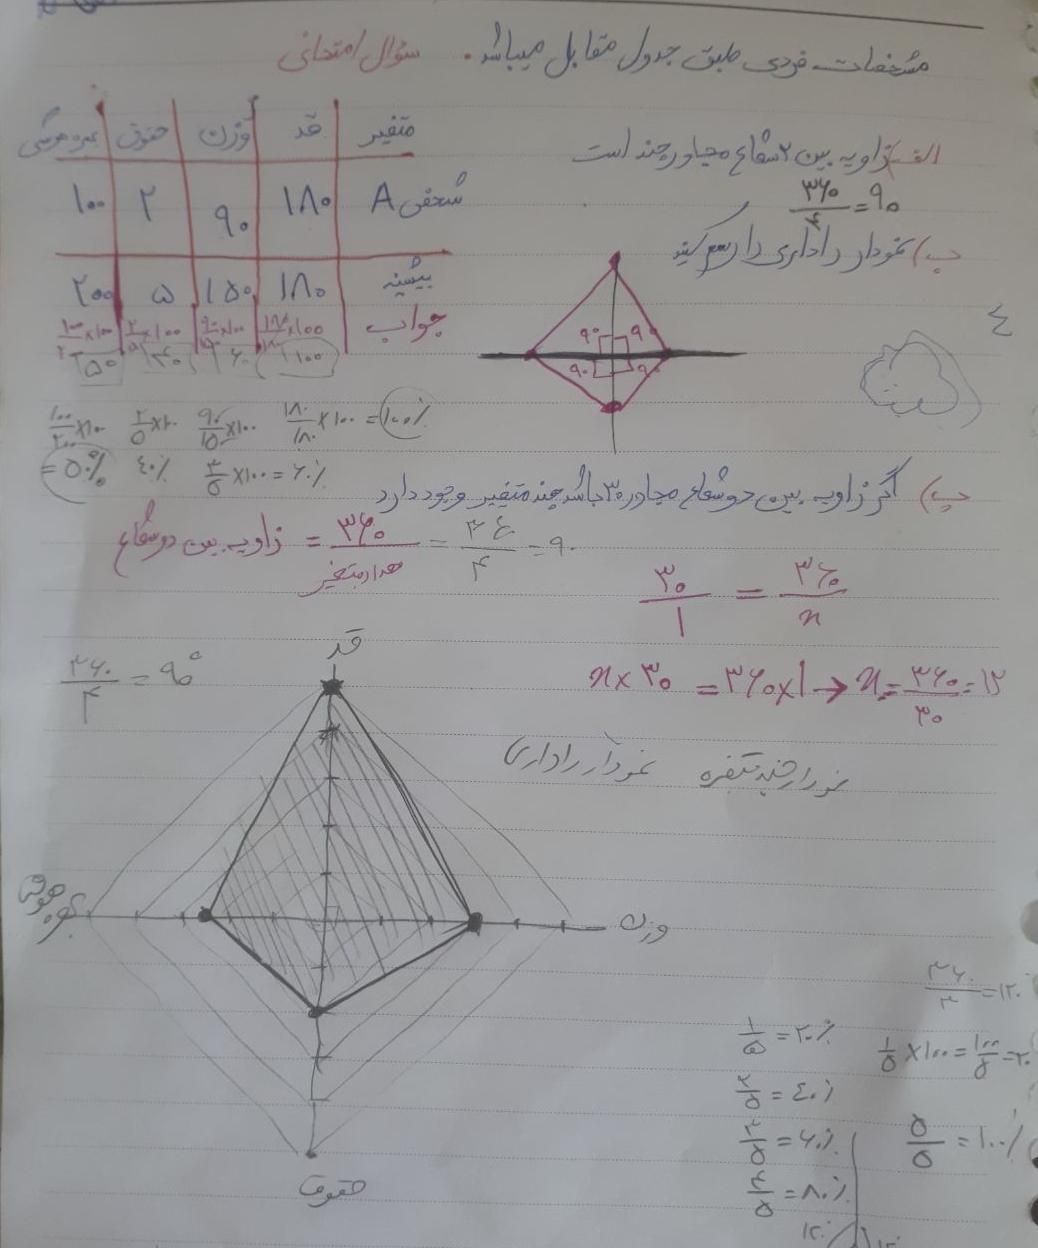 مشخصات فردی طبق جدول مقابل میباشد. سؤال امتحانی
متغیر قد وزن حقوق بهره هوشی
شخص A ۱۸۰ ۹۰ ۲ ۱۰۰
بیشینه ۱۸۰ ۱۵۰ ۵ ۲۰۰
جواب ۱۸۰/۱۸۰×۱۰۰ ۹۰/۱۵۰×۱۰۰ ۲/۵×۱۰۰ ۱۰۰/۲۰۰×۱۰۰
۱۰۰ ۶۰ ۴۰ ۵۰
۱۸۰/۱۸۰×۱۰۰=۱۰۰٪ ۹۰/۱۵۰×۱۰۰ ۲/۵×۱۰۰ ۱۰۰/۲۰۰×۱۰۰
۳/۵×۱۰۰=۶۰٪ ۴۰٪ =۵۰٪
الف) زاویه بین ۲ شعاع مجاور چند است
۳۶۰/۴=۹۰
ب) نمودار راداری را رسم کنید
۹۰ ۹۰
۹۰ ۹۰
۴
پ) اگر زاویه بین دو شعاع مجاور ۳۰ باشد چند متغیر وجود دارد
زاویه بین دو شعاع = ۳۶۰/مقدار متغیر = ۳۶۰/۴ = ۹۰
۳۰/۱ = ۳۶۰/n
n×۳۰ = ۳۶۰×۱ → n = ۳۶۰/۳۰ = ۱۲
۳۶۰/۴ = ۹۰°
نمودار چند متغیره نمودار راداری
قد
وزن
حقوق
۳۶۰/۳=۱۲۰
۱/۵=۲۰٪ ۱/۵×۱۰۰=۱۰۰/۵=۲۰
۲/۵=۴۰٪
۳/۵=۶۰٪ ۵/۵=۱۰۰٪
۴/۵=۸۰٪
۱۲۰ ۱۲۰